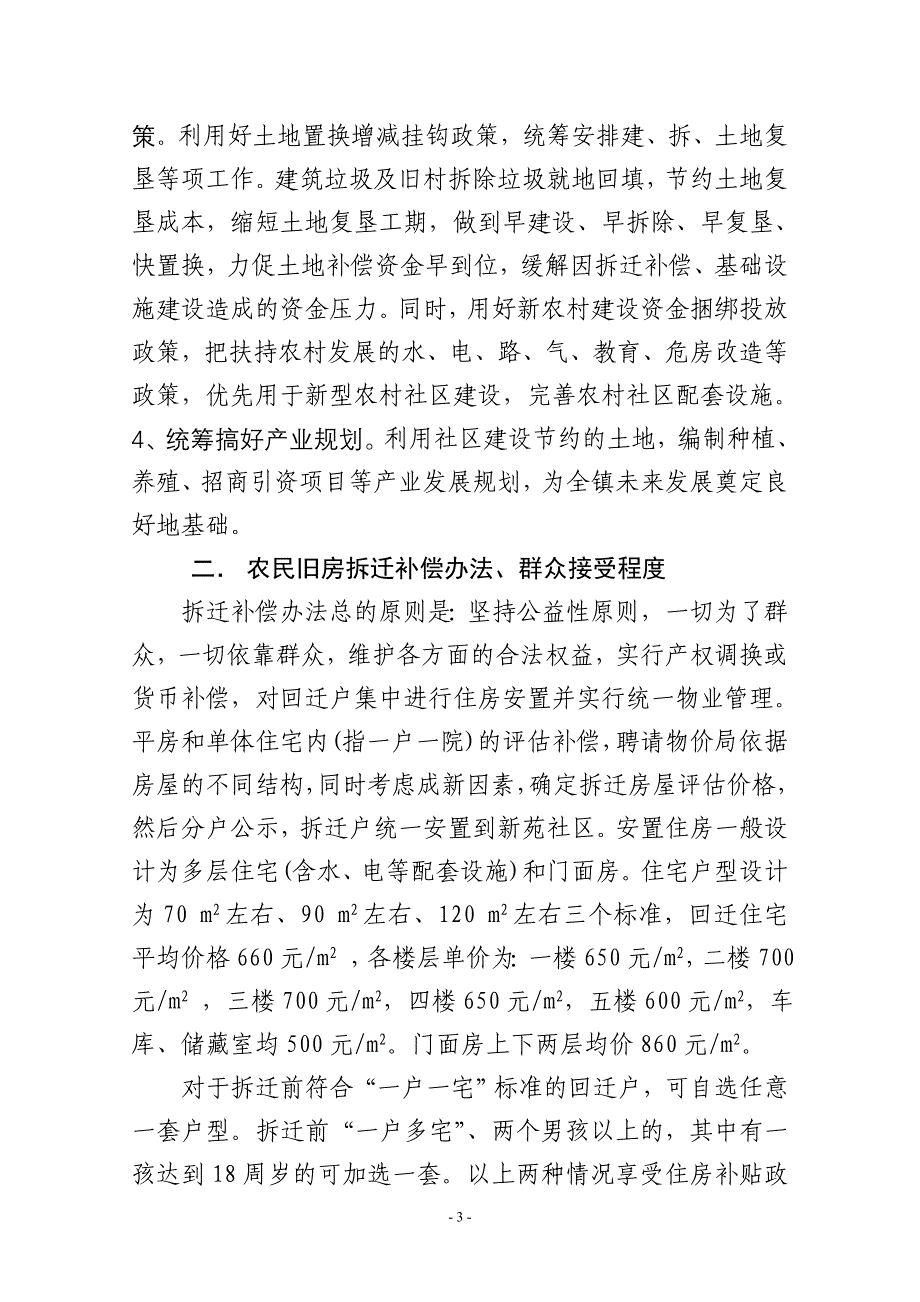 策。利用好土地置换增减挂钩政策，统筹安排建、拆、土地复
垦等项工作。建筑垃圾及旧村拆除垃圾就地回填，节约土地复
垦成本，缩短土地复垦工期，做到早建设、早拆除、早复垦、
快置换，力促土地补偿资金早到位，缓解因拆迁补偿、基础设
施建设造成的资金压力。同时，用好新农村建设资金捆绑投放
政策，把扶持农村发展的水、电、路、气、教育、危房改造等
政策，优先用于新型农村社区建设，完善农村社区配套设施。
4、统筹搞好产业规划。利用社区建设节约的土地，编制种植、
养殖、招商引资项目等产业发展规划，为全镇未来发展奠定良
好地基础。
二． 农民旧房拆迁补偿办法、群众接受程度
拆迁补偿办法总的原则是：坚持公益性原则，一切为了群
众，一切依靠群众，维护各方面的合法权益，实行产权调换或
货币补偿，对回迁户集中进行住房安置并实行统一物业管理。
平房和单体住宅内(指一户一院)的评估补偿，聘请物价局依据
房屋的不同结构，同时考虑成新因素，确定拆迁房屋评估价格，
然后分户公示，拆迁户统一安置到新苑社区。安置住房一般设
计为多层住宅(含水、电等配套设施)和门面房。住宅户型设计
为70 m²左右、90 m²左右、120 m²左右三个标准，回迁住宅
平均价格660元/m² ，各楼层单价为：一楼650元/m²，二楼700
元/m² ，三楼700元/m²，四楼650元/m²，五楼600元/m²，车
库、储藏室均500元/m²。门面房上下两层均价860元/m²。
对于拆迁前符合“一户一宅”标准的回迁户，可自选任意
一套户型。拆迁前“一户多宅”、两个男孩以上的，其中有一
孩达到18周岁的可加选一套。以上两种情况享受住房补贴政
- 3 -